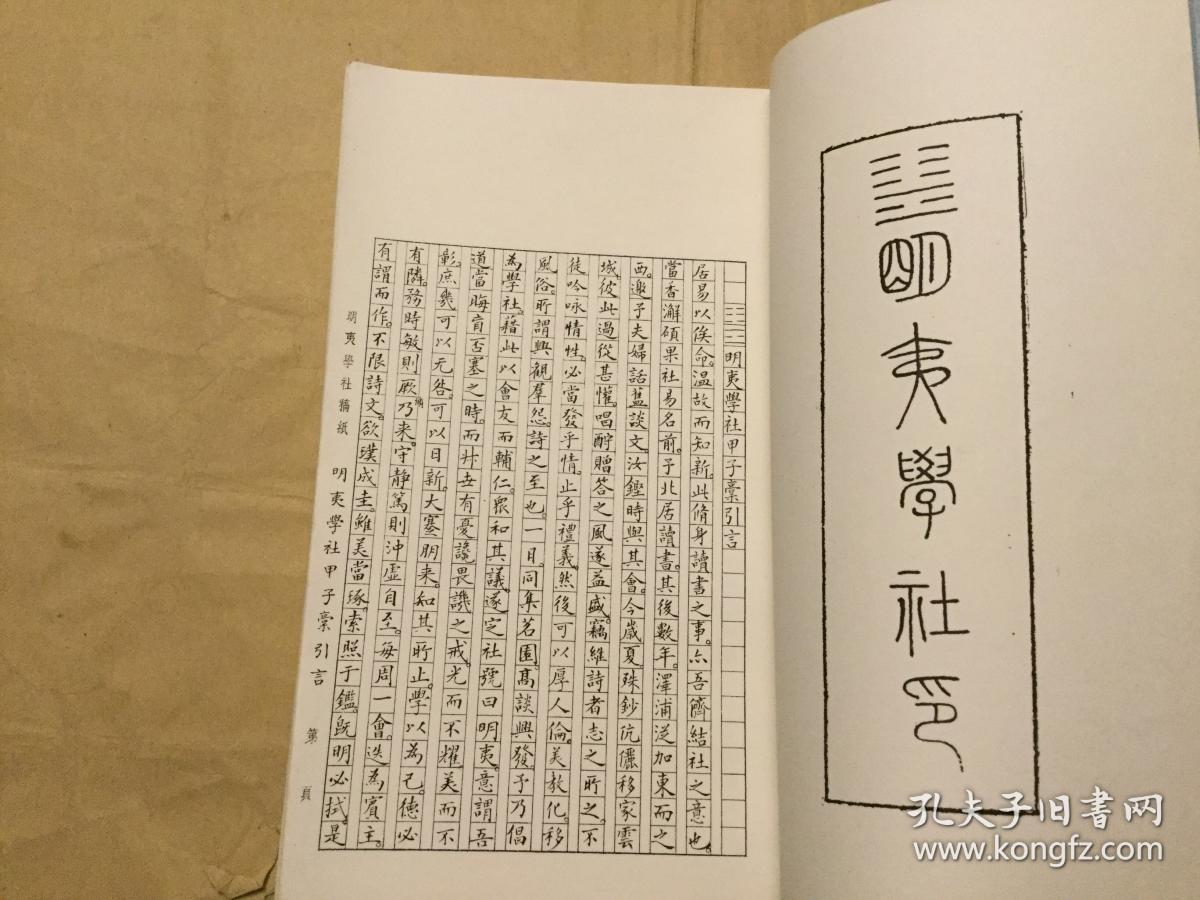 ䷣明夷學社印
䷣明夷學社甲子稾引言
居易以俟命。温故而知新。此脩身讀書之事。亦吾儕結社之意也。
當香澥碩果社易名前。予北居讀書。其後數年。澤浦泛加東而之
西。邀予夫婦話舊談文。汝鏗時與其會。今歲夏殊鈔伉儷移家雲
城。彼此過從甚懽。唱酧贈答之風遂益盛。竊維詩者志之所之。不
徒吟咏情性。必當發乎情。止乎禮義。然後可以厚人倫。美教化。移
風俗。所謂興觀羣怨。詩之至也。一日。同集茗園。高談興發。予乃倡
為學社。藉此以會友而輔仁。眾和其議。遂定社號曰明夷。意謂吾
道當晦盲否塞之時。而廾世有憂讒畏譏之戒。光而不耀。美而不
彰。庶幾可以元咎。可以日新。大蹇朋来。知其所止。學以為己。德必
有隣。務時敏則厥乃来。守静篤則沖虛自至。每周一會。迭為賓主。
有謂而作。不限詩文。欲璞成圭。雖美當琢。索照于鑑。既明必拭。是
明夷學社稿紙 明夷學社甲子稾引言 第 頁
孔夫子旧书网
www.kongfz.com